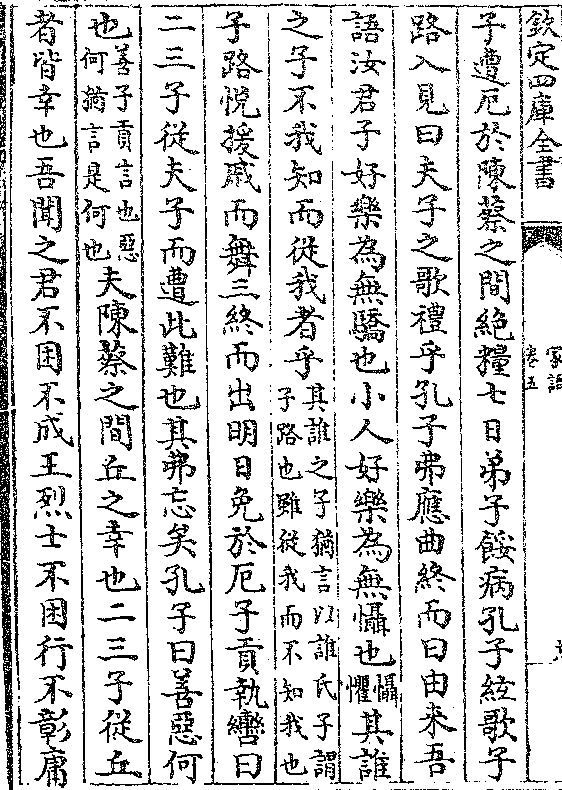 欽定四庫全書
家語
卷五
子遭厄於陳蔡之間絶糧七日弟子餒病孔子絃歌子
路入見曰夫子之歌禮乎孔子弗應曲終而曰由來吾
語汝君子好樂為無驕也小人好樂為無懾也懾懼其誰
之子不我知而從我者乎其誰之子猶言以誰氏子謂子路也雖從我而不知我也
子路悦援戚而舞三終而出明日免於厄子貢執轡曰
二三子從夫子而遭此難也其弗忘矣孔子曰善惡何
也善子貢言也惡何猶言是何也夫陳蔡之間丘之幸也二三子從丘
者皆幸也吾聞之君不困不成王烈士不困行不彰庸